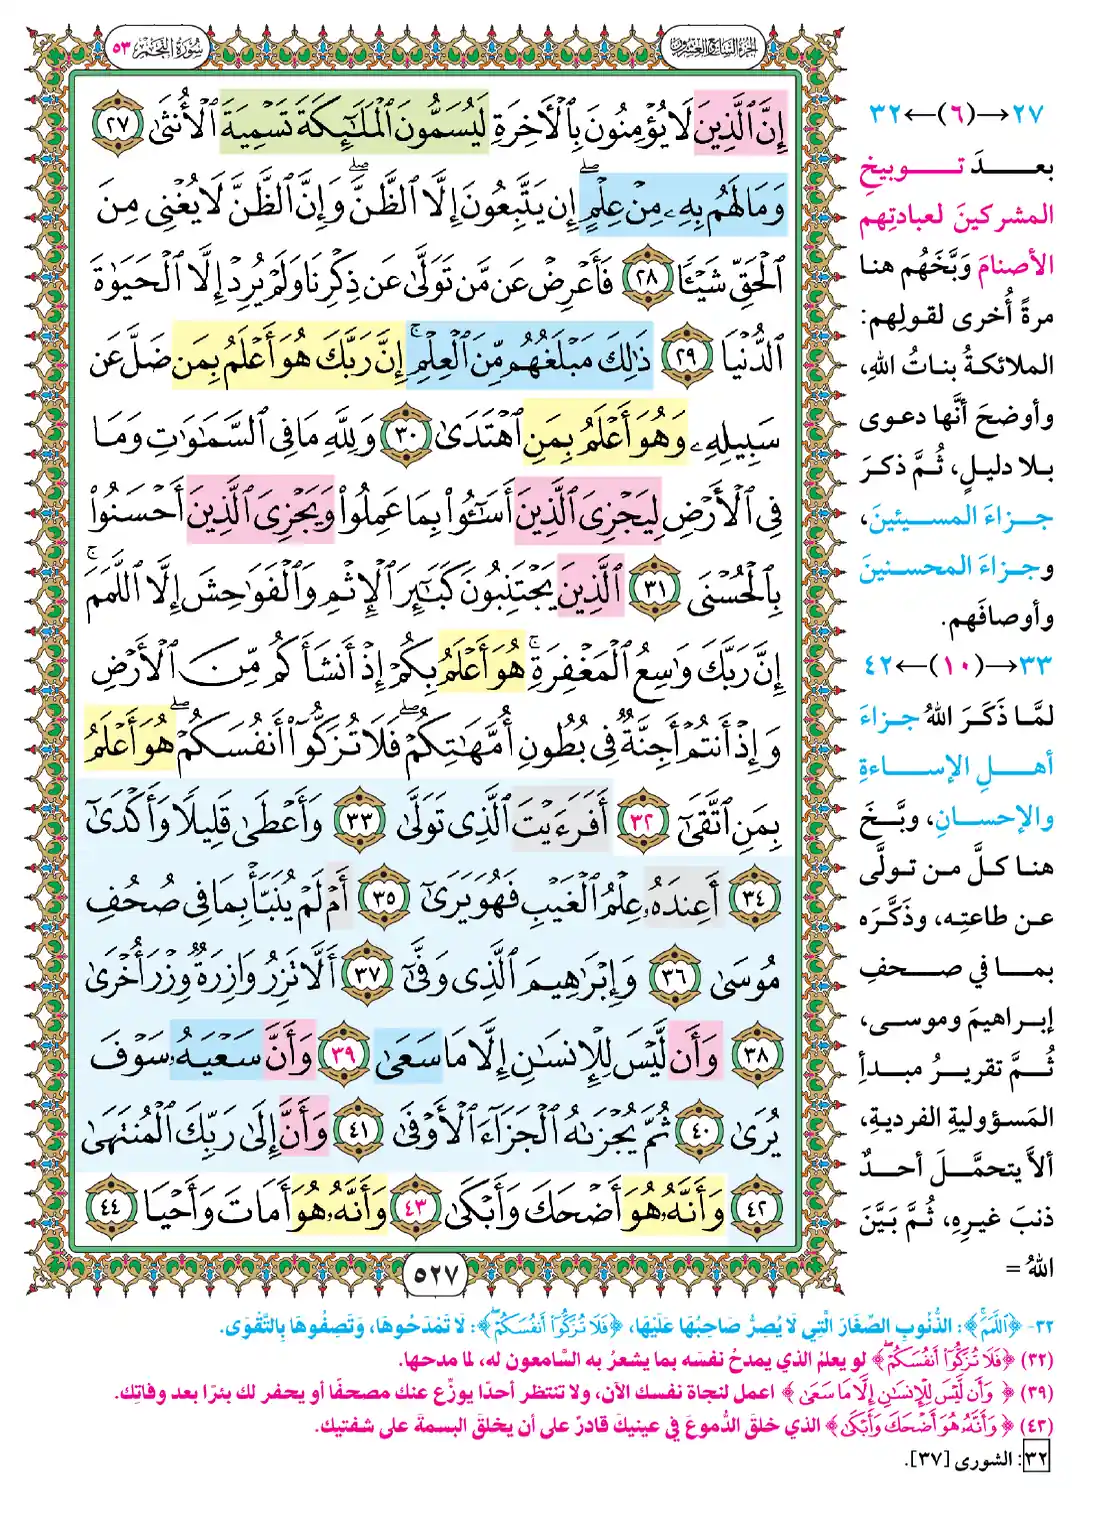 الجزء السابع والعشرون
سورة النجم ٥٣
إِنَّ ٱلَّذِينَ لَا يُؤْمِنُونَ بِٱلْأَخِرَةِ لَيُسَمُّونَ ٱلْمَلَٰٓئِكَةَ تَسْمِيَةَ ٱلْأُنثَىٰ ٢٧
وَمَا لَهُم بِهِۦ مِنْ عِلْمٍۖ إِن يَتَّبِعُونَ إِلَّا ٱلظَّنَّۖ وَإِنَّ ٱلظَّنَّ لَا يُغْنِى مِنَ
ٱلْحَقِّ شَيْـًٔا ٢٨ فَأَعْرِضْ عَن مَّن تَوَلَّىٰ عَن ذِكْرِنَا وَلَمْ يُرِدْ إِلَّا ٱلْحَيَوٰةَ
ٱلدُّنْيَا ٢٩ ذَٰلِكَ مَبْلَغُهُم مِّنَ ٱلْعِلْمِۚ إِنَّ رَبَّكَ هُوَ أَعْلَمُ بِمَن ضَلَّ عَن
سَبِيلِهِۦ وَهُوَ أَعْلَمُ بِمَنِ ٱهْتَدَىٰ ٣٠ وَلِلَّهِ مَا فِى ٱلسَّمَٰوَٰتِ وَمَا
فِى ٱلْأَرْضِ لِيَجْزِىَ ٱلَّذِينَ أَسَٰٓـُٔوا۟ بِمَا عَمِلُوا۟ وَيَجْزِىَ ٱلَّذِينَ أَحْسَنُوا۟
بِٱلْحُسْنَى ٣١ ٱلَّذِينَ يَجْتَنِبُونَ كَبَٰٓئِرَ ٱلْإِثْمِ وَٱلْفَوَٰحِشَ إِلَّا ٱللَّمَمَۚ
إِنَّ رَبَّكَ وَٰسِعُ ٱلْمَغْفِرَةِۚ هُوَ أَعْلَمُ بِكُمْ إِذْ أَنشَأَكُم مِّنَ ٱلْأَرْضِ
وَإِذْ أَنتُمْ أَجِنَّةٌ فِى بُطُونِ أُمَّهَٰتِكُمْۖ فَلَا تُزَكُّوٓا۟ أَنفُسَكُمْۖ هُوَ أَعْلَمُ
بِمَنِ ٱتَّقَىٰٓ ٣٢ أَفَرَءَيْتَ ٱلَّذِى تَوَلَّىٰ ٣٣ وَأَعْطَىٰ قَلِيلًا وَأَكْدَىٰٓ
٣٤ أَعِندَهُۥ عِلْمُ ٱلْغَيْبِ فَهُوَ يَرَىٰٓ ٣٥ أَمْ لَمْ يُنَبَّأْ بِمَا فِى صُحُفِ
مُوسَىٰ ٣٦ وَإِبْرَٰهِيمَ ٱلَّذِى وَفَّىٰٓ ٣٧ أَلَّا تَزِرُ وَازِرَةٌ وِزْرَ أُخْرَىٰ
٣٨ وَأَن لَّيْسَ لِلْإِنسَٰنِ إِلَّا مَا سَعَىٰ ٣٩ وَأَنَّ سَعْيَهُۥ سَوْفَ
يُرَىٰ ٤٠ ثُمَّ يُجْزَىٰهُ ٱلْجَزَآءَ ٱلْأَوْفَىٰ ٤١ وَأَنَّ إِلَىٰ رَبِّكَ ٱلْمُنتَهَىٰ
٤٢ وَأَنَّهُۥ هُوَ أَضْحَكَ وَأَبْكَىٰ ٤٣ وَأَنَّهُۥ هُوَ أَمَاتَ وَأَحْيَا ٤٤
٥٢٧
٢٧→(٦)←٣٢
بعدَ توبيخِ
المشركينَ لعبادتِهم
الأصنامَ وَبَّخَهُم هنا
مرةً أُخرى لقولِهم:
الملائكةُ بناتُ اللهِ،
وأوضحَ أنَّها دعوى
بلا دليلٍ، ثُمَّ ذكرَ
جزاءَ المسيئينَ،
وجزاءَ المحسنينَ
وأوصافَهم.
٣٣→(١٠)←٤٢
لمَّا ذَكَرَ اللهُ جزاءَ
أهلِ الإساءةِ
والإحسانِ، وبَّخَ
هنا كلَّ من تولَّى
عن طاعتِه، وذَكَّرَه
بما في صحفِ
إبراهيمَ وموسى،
ثُمَّ تقريرُ مبدأِ
المَسؤوليةِ الفرديةِ،
ألاَّ يتحمَّلَ أحدٌ
ذنبَ غيرِه، ثُمَّ بَيَّنَ
اللهُ =
٣٢- ﴿ٱللَّمَمَۚ﴾: الذُّنُوبَ الصِّغَارَ الَّتِي لَا يُصِرُّ صَاحِبُهَا عَلَيْهَا، ﴿فَلَا تُزَكُّوٓا۟ أَنفُسَكُمْۖ﴾: لَا تَمْدَحُوهَا، وَتَصِفُوهَا بِالتَّقْوَى.
(٣٢) ﴿فَلَا تُزَكُّوٓا۟ أَنفُسَكُمْۖ﴾ لو يعلمُ الذي يمدحُ نفسَه بما يشعرُ به السَّامعون له، لما مدحها.
(٣٩) ﴿وَأَن لَّيْسَ لِلْإِنسَٰنِ إِلَّا مَا سَعَىٰ﴾ اعمل لنجاة نفسك الآن، ولا تنتظر أحدًا يوزِّع عنك مصحفًا أو يحفر لك بئرًا بعد وفاتِك.
(٤٣) ﴿وَأَنَّهُۥ هُوَ أَضْحَكَ وَأَبْكَىٰ﴾ الذي خلقَ الدُّموعَ في عينيكَ قادرٌ على أن يخلقَ البسمةَ على شفتيك.
٣٢: الشورى [٣٧].